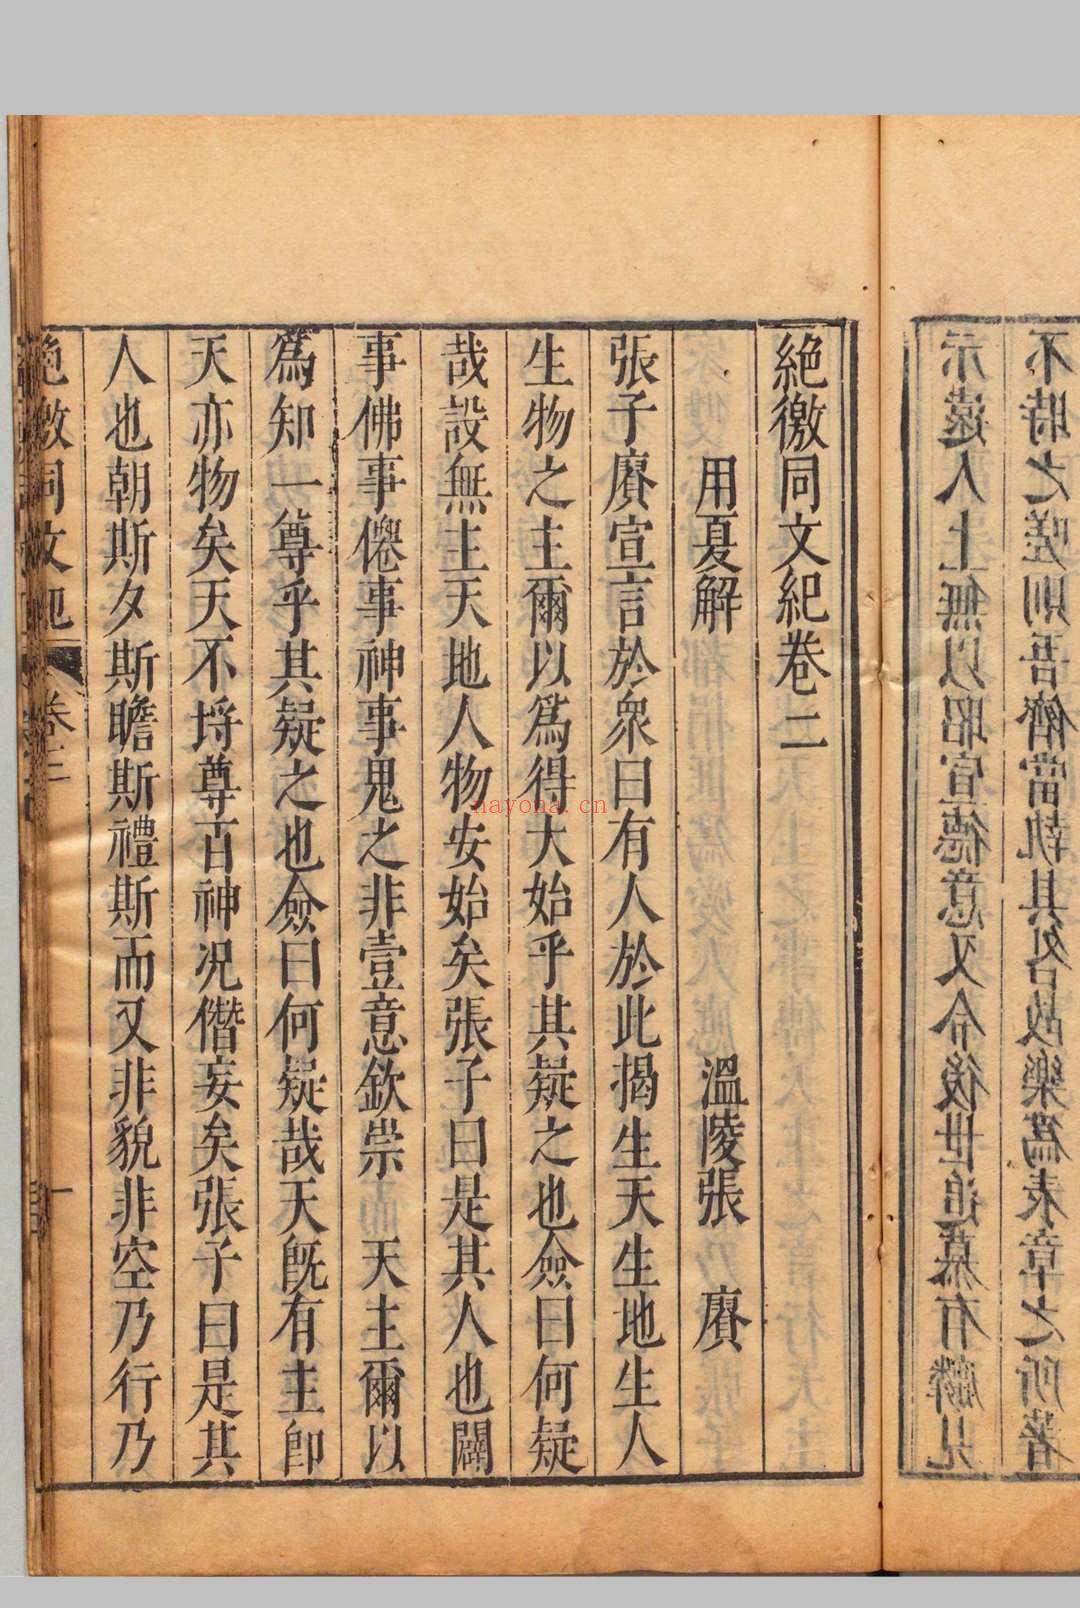 絕徼同文紀卷二
用夏解 溫陵張 賡
張子賡宣言於衆曰有人於此揭生天生地生人
生物之主爾以爲得大始乎其疑之也僉曰何疑
哉設無主天地人物安始矣張子曰是其人也闢
事佛事僊事神事鬼之非壹意欽崇 天主爾以
爲知一尊乎其疑之也僉曰何疑哉天旣有主卽
天亦物矣天不埒尊百神况僭妄矣張子曰是其
人也朝斯夕斯瞻斯禮斯而又非貌非空乃行乃
絕徼同文紀 卷二 一
nayona.cn
不時之嗟則吾儕當執其名故樂爲表章之所著
示遠人士無以昭宣德意又令後世追慕有麟見